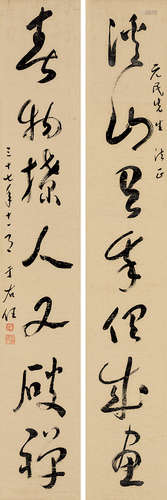 元民先生 法正
溪山 成畫
春物撩人又破禪
三十七年十一月 于右任